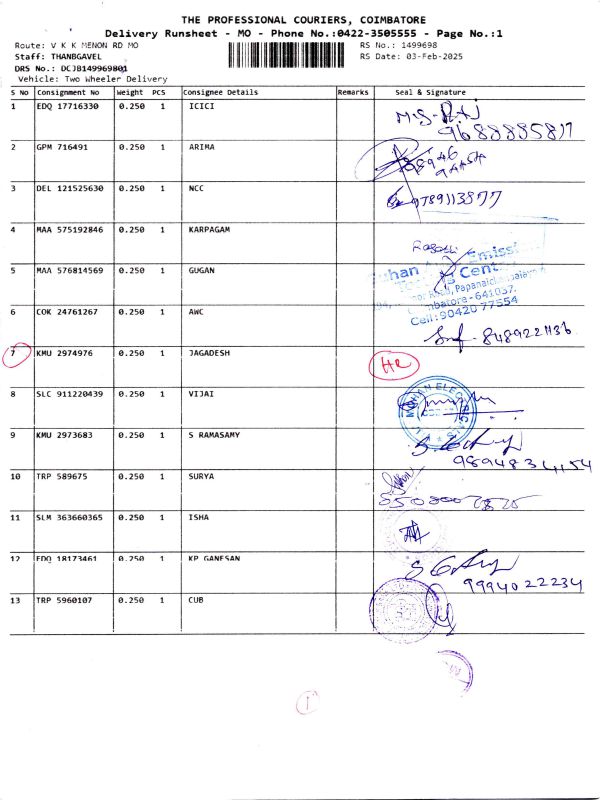 THE PROFESSIONAL COURIERS, COIMBATORE
Delivery Runsheet - MO - Phone No.:0422-3505555 - Page No.:1
Route: V K K MENON RD MO
RS No.: 1499698
Staff: THANBGAVEL
RS Date: 03-Feb-2025
DRS No.: DCJB149969801
Vehicle: Two Wheeler Delivery
S No Consignment No Weight PCS Consignee Details Remarks Seal & Signature
1 EDQ 17716330 0.250 1 ICICI M.S-RAJ
9688885817
2 GPM 716491 0.250 1 ARIMA
3 DEL 121525630 0.250 1 NCC 9789113877
4 MAA 575192846 0.250 1 KARPAGAM
Emiss
5 MAA 576814569 0.250 1 GUGAN
Cent
Coimbatore - 641037.
Cell: 90420 77554
6 COK 24761267 0.250 1 AWC
7 KMU 2974976 0.250 1 JAGADESH
8 SLC 911220439 0.250 1 VIJAI
MOHAN ELECTRICALS
9 KMU 2973683 0.250 1 S RAMASAMY
9894834154
10 TRP 589675 0.250 1 SURYA
11 SLM 363660365 0.250 1 ISHA
12 EDQ 18173461 0.250 1 KP GANESAN
9994022234
13 TRP 5960107 0.250 1 CUB
1